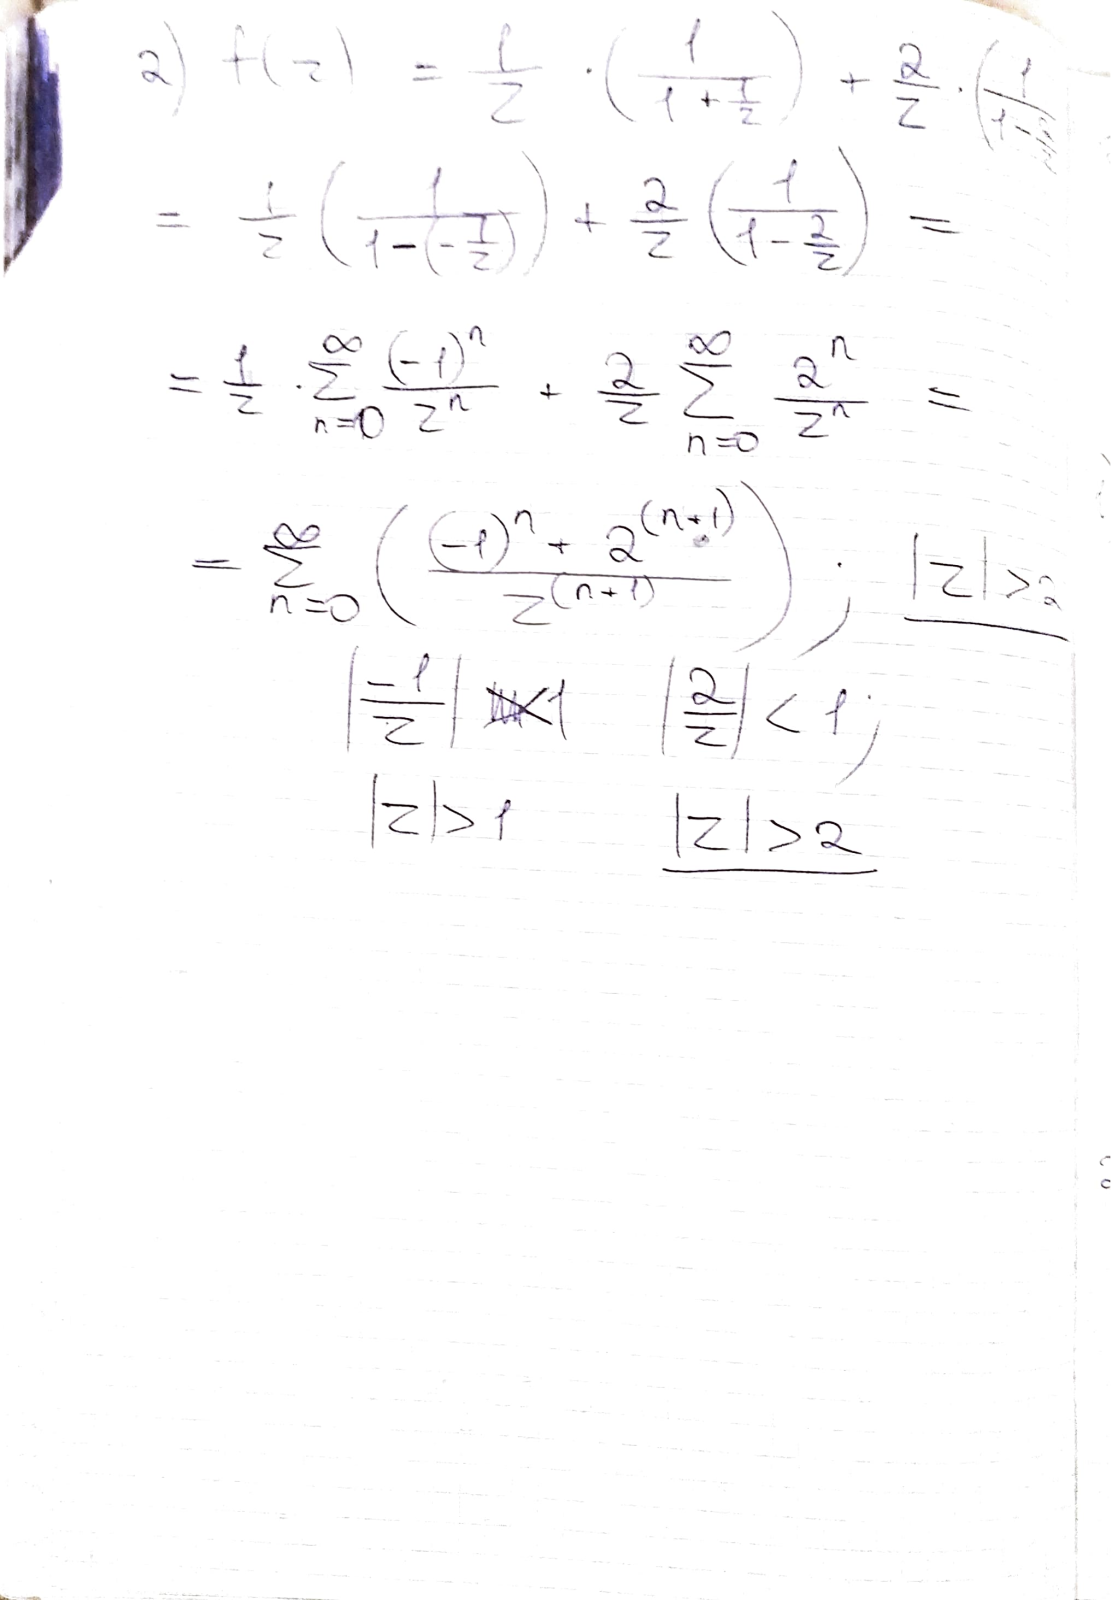 2) f(z) = 1/z · (1/(1 + 1/z)) + 2/z · (1/(1 -
= 1/z (1/(1-(-1/z))) + 2/z (1/(1 - 2/z)) =
= 1/z · ∑_{n=0}^{∞} (-1)^n/z^n + 2/z ∑_{n=0}^{∞} 2^n/z^n =
= ∑_{n=0}^{∞} ( ((-1)^n + 2^(n+1))/z^(n+1) ) ; |z| > 2
|-1/z| < 1 |2/z| < 1;
|z| > 1 |z| > 2